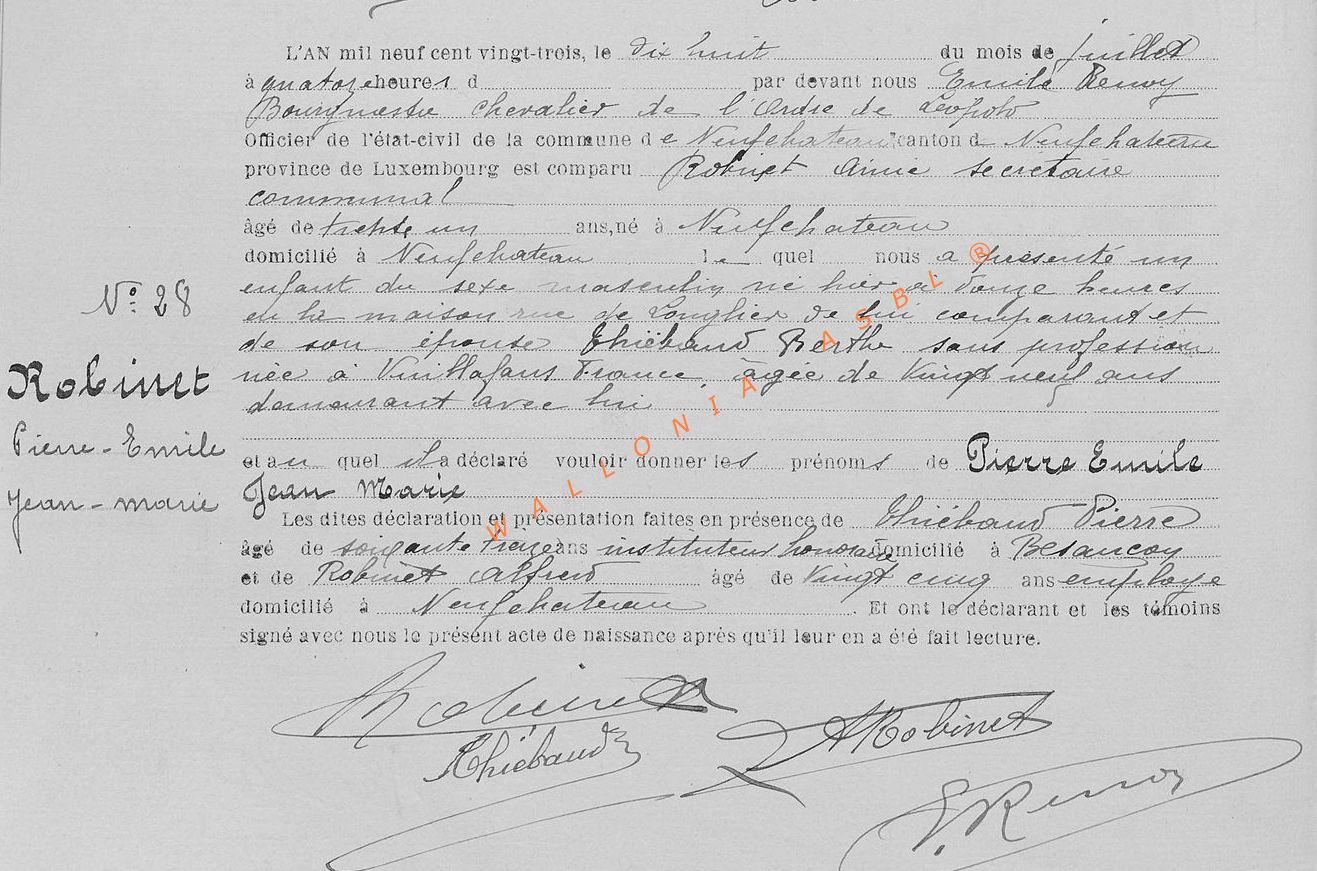 L'AN mil neuf cent vingt-trois, le dix huit du mois de juillet
à quatorze heures d par devant nous Emile Renoy
Bourgmestre Chevalier de l'Ordre de Léopold
Officier de l'état-civil de la commune de Neufchateau canton de Neufchateau
province de Luxembourg est comparu Robinet Aimé secrétaire
communal
âgé de trente un ans, né à Neufchateau
domicilié à Neufchateau lequel nous a présenté un
enfant du sexe masculin né hier à douze heures
en la maison rue de Longlier de lui comparant et
N° 28
de son épouse Thiébaud Berthe sans profession
Robinet
née à Vuillafans France, âgée de vingt neuf ans
demeurant avec lui
Pierre-Emile
et auquel il a déclaré vouloir donner les prénoms de Pierre Emile
Jean-Marie
Jean Marie
Les dites déclaration et présentation faites en présence de Thiébaud Pierre
âgé de soixante treize ans instituteur honoraire domicilié à Besançon
et de Robinet Alfred âgé de vingt cinq ans employé
domicilié à Neufchateau. Et ont le déclarant et les témoins
signé avec nous le présent acte de naissance après qu'il leur en a été fait lecture.
Robinet
Thiébaud
ARobinet
E. Renoy
WALLONIA ASBL ®